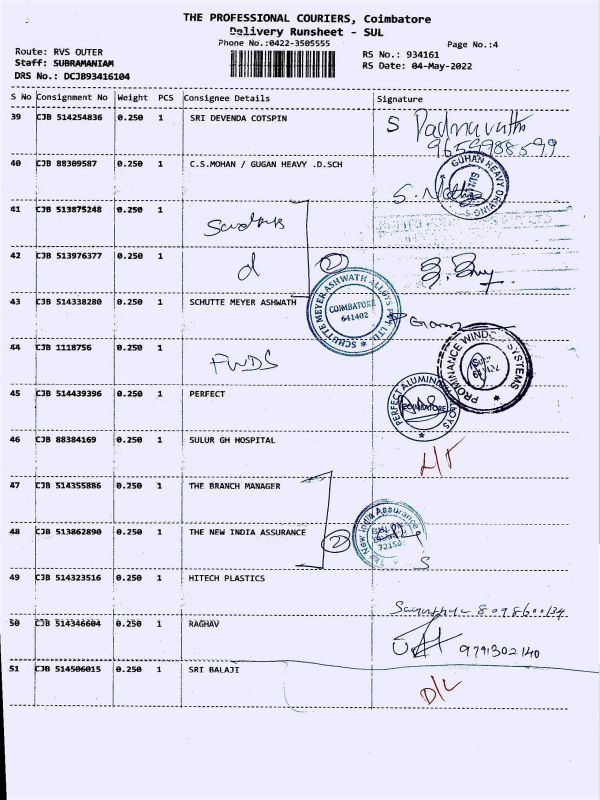 THE PROFESSIONAL COURIERS, Coimbatore
Delivery Runsheet - SUL
Phone No.:0422-3505555
Page No.:4
Route: RVS OUTER
RS No.: 934161
Staff: SUBRAMANIAM
RS Date: 04-May-2022
DRS No.: DCJB93416104
S No Consignment No Weight PCS Consignee Details Signature
39 CJB 514254836 0.250 1 SRI DEVENDA COTSPIN
S Padmavathi
9659988599
40 CJB 88309587 0.250 1 C.S.MOHAN / GUGAN HEAVY .D.SCH
GUHAN HEAVY DRIVING
41 CJB 513875248 0.250 1
42 CJB 513976377 0.250 1
d
2
43 CJB 514338280 0.250 1 SCHUTTE MEYER ASHWATH
SCHUTTE MEYER ASHWATH ALLOYS PVT LTD.
COIMBATORE
641402
44 CJB 1118756 0.250 1
PWDS
PROMINANCE WINDOW SYSTEMS
45 CJB 514439396 0.250 1 PERFECT
PERFECT ALUMINIUM ALLOYS
COIMBATORE
46 CJB 88384169 0.250 1 SULUR GH HOSPITAL
47 CJB 514355886 0.250 1 THE BRANCH MANAGER
48 CJB 513862890 0.250 1 THE NEW INDIA ASSURANCE
2
The New India Assurance
S
49 CJB 514323516 0.250 1 HITECH PLASTICS
8098600134
50 CJB 514346604 0.250 1 RAGHAV
9791302140
51 CJB 514506015 0.250 1 SRI BALAJI
D/L